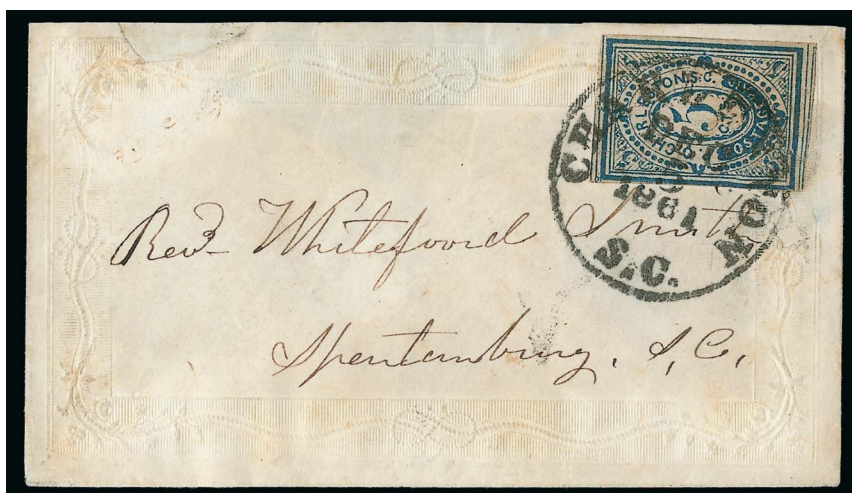 CHARLESTON, S.C.
5
CHA
TON
1861
S.C.
Revd Whitefoord Smith
Spartanburg, S, C,